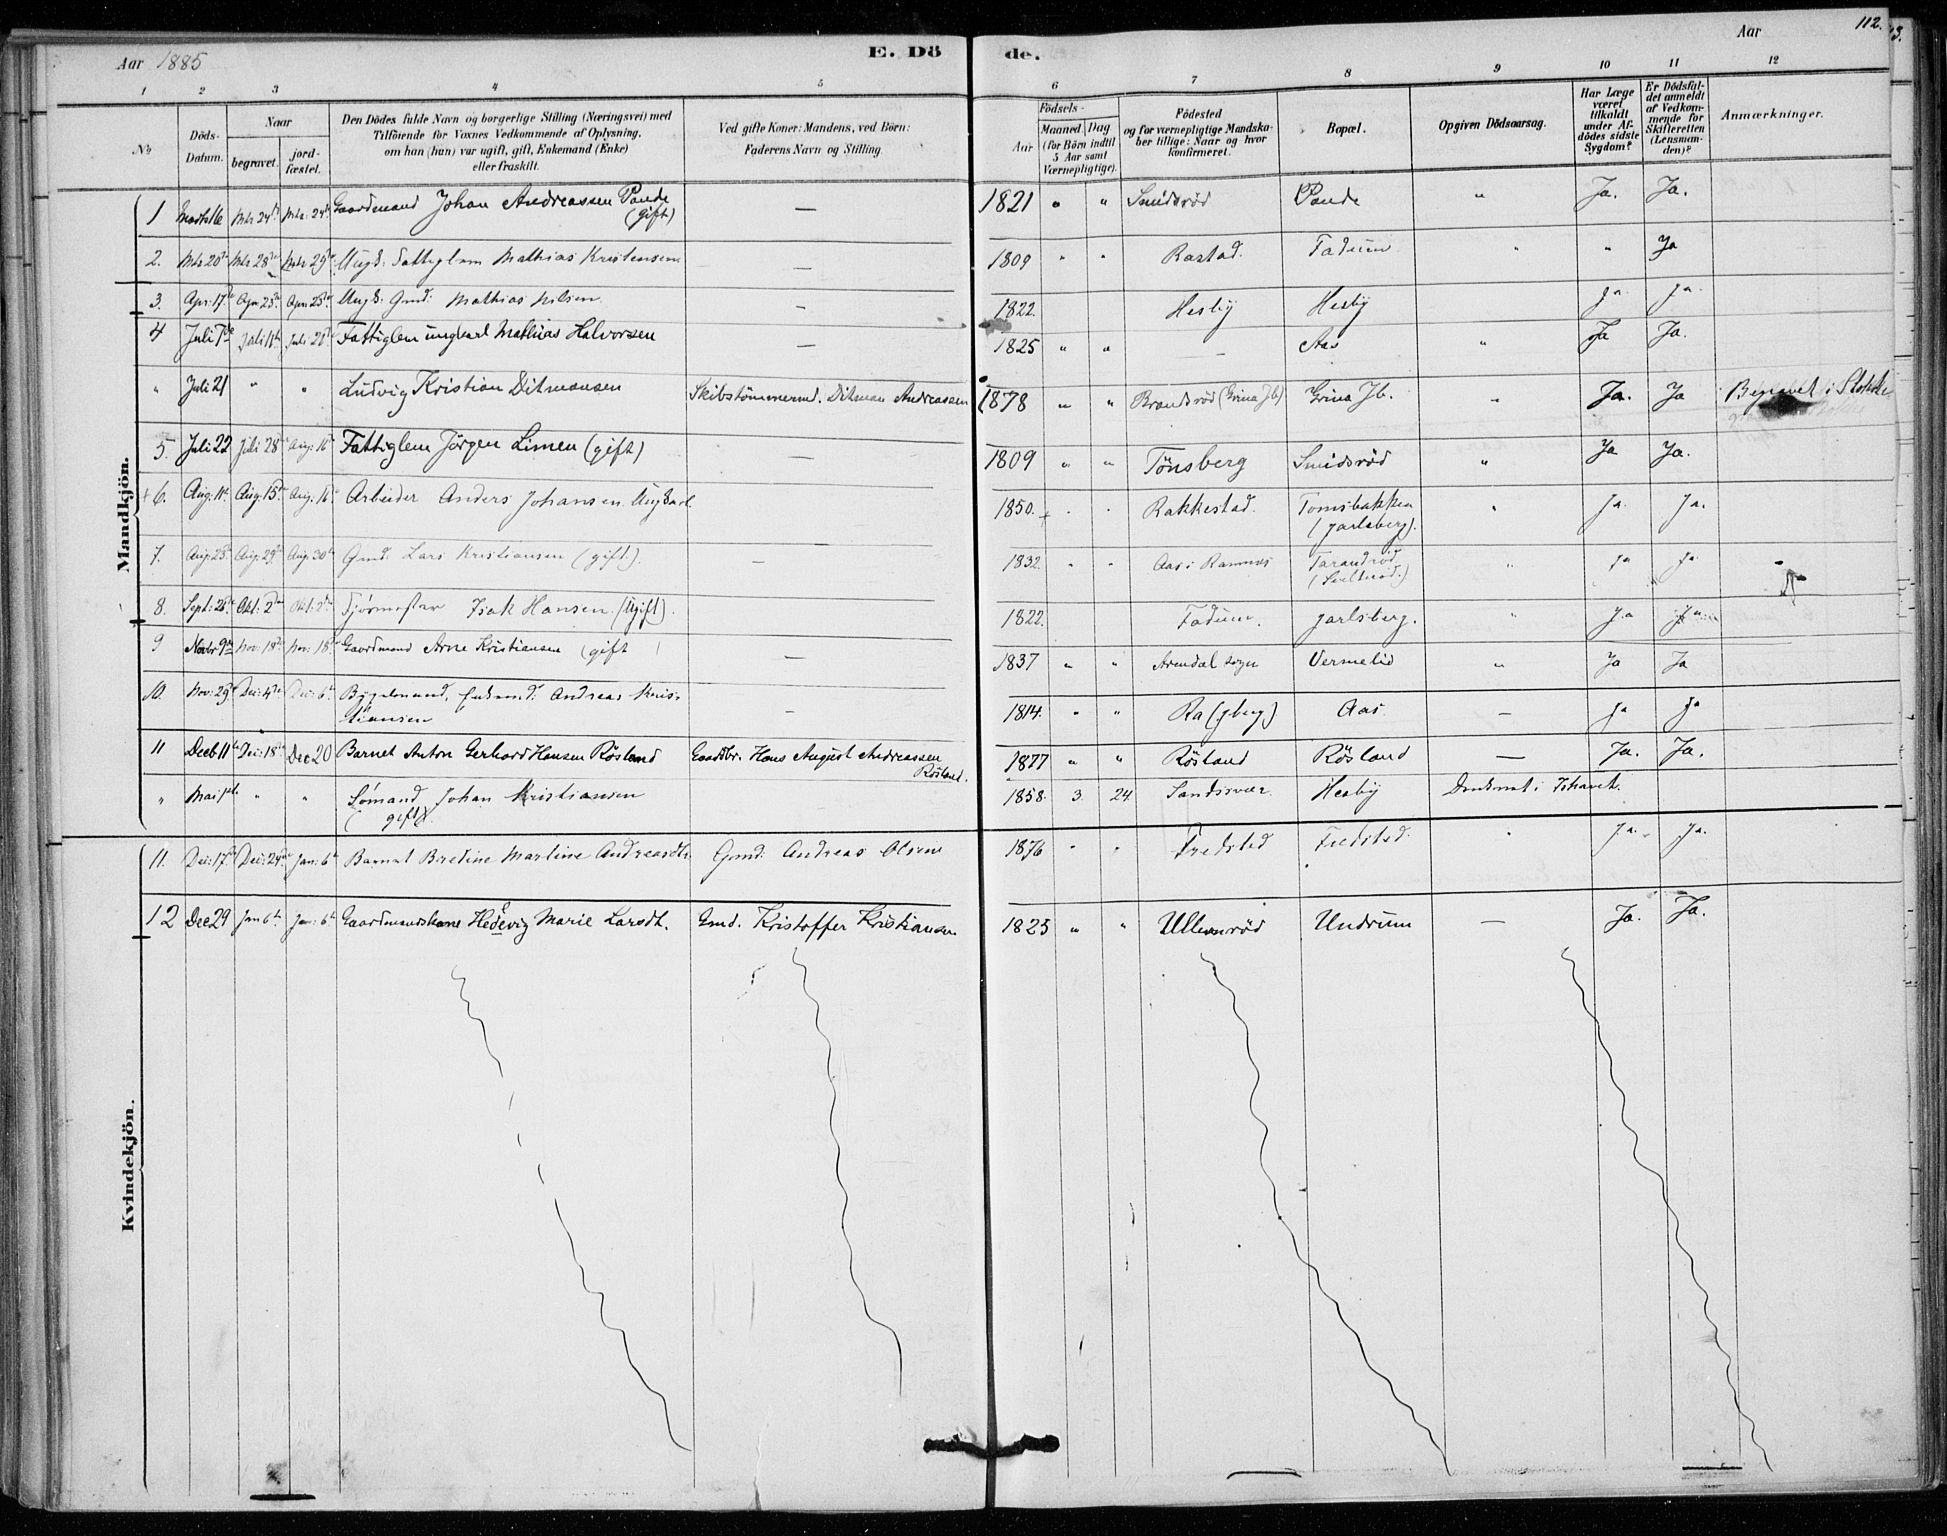 112.
Aar 1885
E. Dö
de.
Aar
1 2 3 4 5 6 7 8 9 10 11 12
No
Döds-Datum.
Naar
begravet.
jordfæstet.
Den Dödes fulde Navn og borgerlige Stilling (Næringsvei) med
Tilföiende for Voxnes Vedkommende af Oplysning,
om han (hun) var ugift, gift, Enkemand (Enke)
eller fraskilt.
Ved gifte Koner: Mandens, ved Börn:
Faderens Navn og Stilling
Födsels-
Aar
Maaned Dag
(for Börn indtil
5 Aar samt
Værnepligtige).
Födested
og for værnepligtige Mandskaber tillige: Naar og hvor
konfirmeret.
Bopæl.
Opgiven Dödsaarsag.
Har Læge
været
tilkaldt
under Afdödes sidste
Sygdom?
Er Dödsfaldet anmeldt
af Vedkommende for
Skifteretten
(Lensmanden)?
Anmærkninger.
Mandkjön.
1 Marts 16 Mts 24de Mts: 24de Gaardmand Johan Andreassen Pande (gift) — 1821 " " Smidsrød Pande " Ja. Ja.
2. Mts 20de Mts 28de Mts 29de Ungk: Fattiglem Mathias Kristensen — 1809 " " Rastad. Fadum " " Ja
3. Apr: 17de Apr: 25de Apr: 25de Ungk: Gmd: Mathias Nilsen — 1822. Hesby Hesby Ja. Ja.
4 Juli 7de Juli 11te Fattiglem ungkarl Mathias Halvorsen — 1825 " " — Aas " Ja Ja.
" Juli 21 " " Ludvig Kristian Ditmansen Skibstømmermd. Ditman Andreassen 1878 " " Brandsrød (Grina Jb) Grina Jb. " Ja. Ja Begravet i Stokke
5. Juli 22 Juli 28 Aug: 16de Fattiglem Jörgen Limen (gift) — 1809 " " Tönsberg Smidsrød " Ja Ja.
+ 6. Aug: 11te Aug: 15de Aug. 16de Arbeider Anders Johansen Ungkarl 1850. + " " Rakkestad. Tomsbakken (Jarlsberg). " Ja. Ja.
7. Aug: 29de Aug 30te Gmd. Lars Kristiansen (gift.) — 1832. " " Aas i Ramnes Tarandrød " Ja Ja.
8. Okt: 2den Isak Hansen. (Ugift). 1822. Fadum. Jarlsberg. " Ja
9 Novbr 9de Nov: 18de Nov: 18de Gaardmand Arne Kristiansen (gift) — 1837 " " Arendal sogn Vermelid " Ja Ja
10. Nov: 29de Dec: 4de Dec: 6te Enkemd: Andreas Kristiansen — 1814. " " Ra Aas — Ja Ja
11 Decb 11te Dec: 18de Dec 20 Barnet Anton Gerhard Hansen Rösland Gaardbr. Hans August Andreassen Rösland. 1877 " " Rösland Rösland — Ja. Ja.
" Mai " " Sömand Johan Kristiansen (gift). 1858. 3. 24. Sandsvær. Hesby Druknet i Ishavet.
Kvindekjön.
11. Dec: 17de Dec: 29de Jan: 6te Barnet Bredine Martine Andreasdt. Gmd: Andreas Olsen 1876 " " Fredsted Fredsted " Ja. Ja.
12 Dec 29 Jan 6te Jan: 6te Gaardmandskone Hedevig Marie Larsdt. Gmd. Kristoffer Kristiansen 1825 " " Ullensrød Undrum — Ja. Ja.